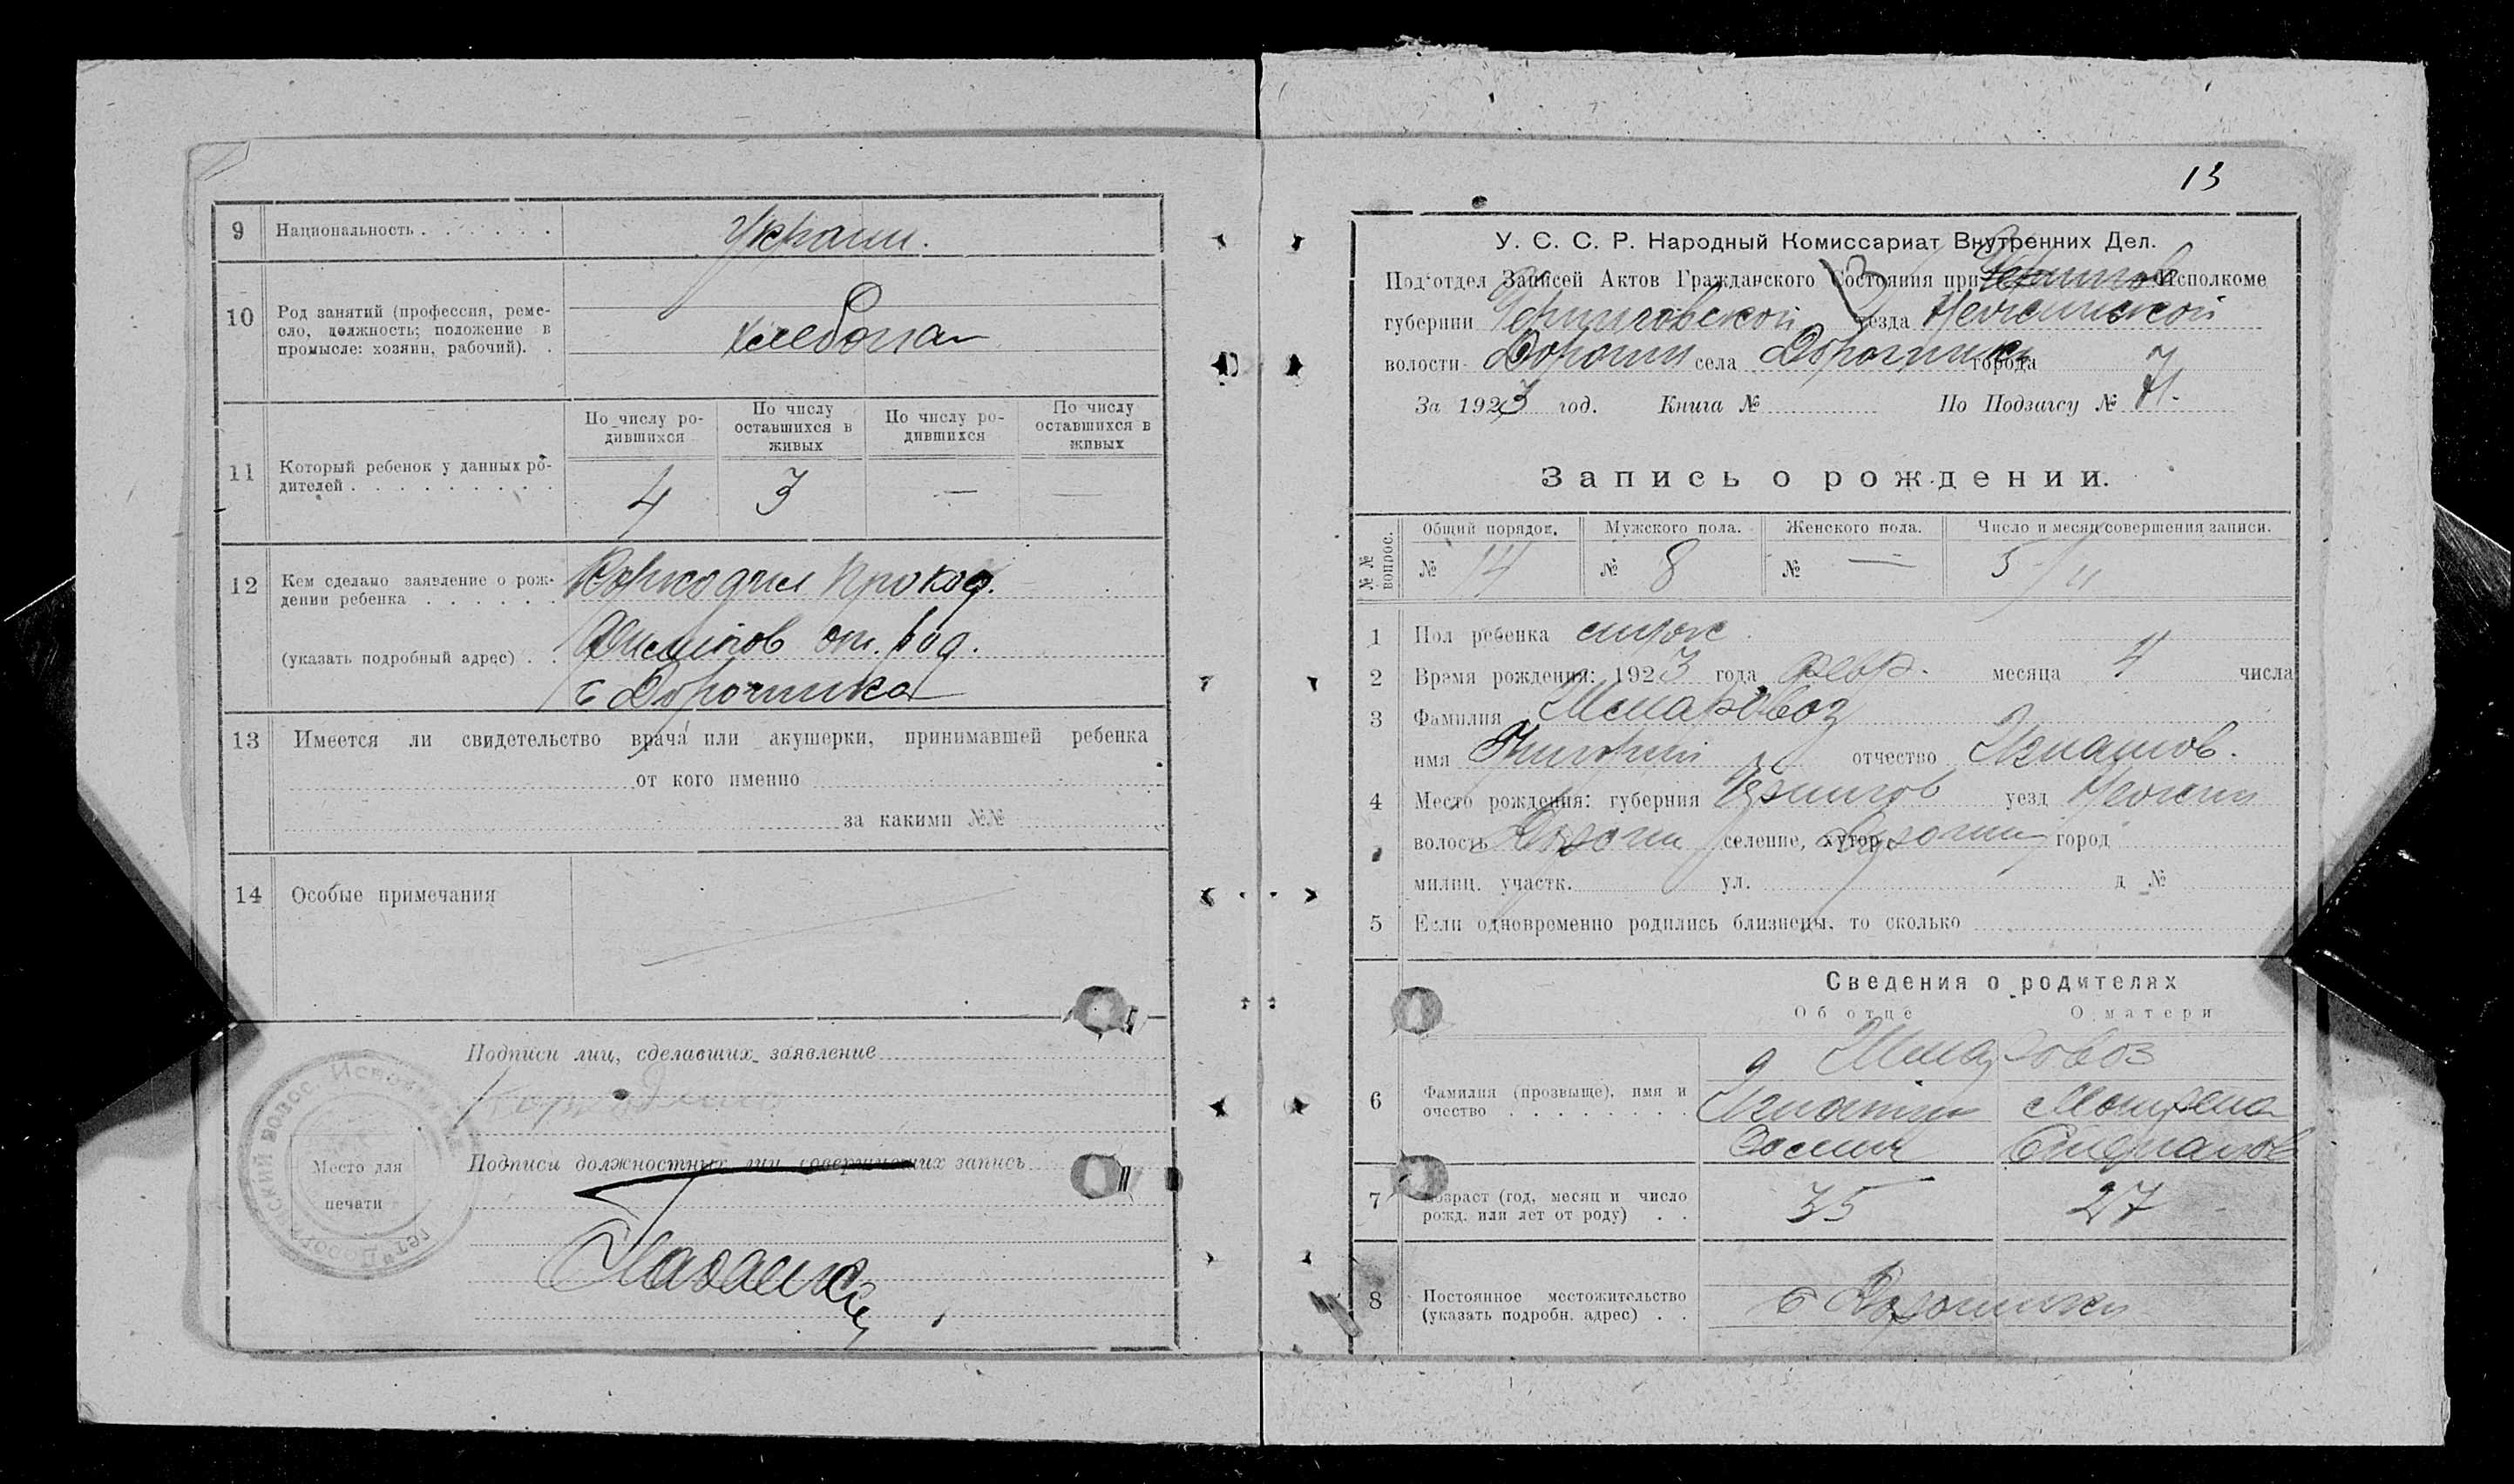 9 Национальность . . . . . . Украин.
10 Род занятий (профессия, реме-
сло, должность; положение в
промысле: хозяин, рабочий). .
хлебопаш
11 Который ребенок у данных ро-
дителей . . . . . . . . .
По числу ро-
дившихся
По числу
оставшихся в
живых
По числу ро-
дившихся
По числу
оставшихся в
живых
4 3 — —
12 Кем сделано заявление о рож-
дении ребенка . . . . . .
(указать подробный адрес) . .
с Дорогинка
13 Имеется ли свидетельство врача или акушерки, принимавшей ребенка
от кого именно
за какими №№
14 Особые примечания
Подписи лиц, сделавших заявление
Подписи должностных лиц совершивших запись
Место для
печати
13
У. С. С. Р. Народный Комиссариат Внутренних Дел.
Под'отдел Записей Актов Гражданского Состояния при Исполкоме
губернии Черниговской уезда Нежинской
волости Дорогин села Дорогинки города
За 1923 год. Книга № По Подзагсу №
Запись о рождении.
№ № вопрос.
Общий порядок. Мужского пола. Женского пола. Число и месяц совершения записи.
№ 14 № 8 № — 5/II
1 Пол ребенка
2 Время рождения: 1923 года февр. месяца 4 числа
3 Фамилия Шмаровоз
имя Григорий отчество Игнатов.
4 Место рождения: губерния Чернигов уезд Нежин
волость Дорогин селение, хутор Дорогин город
милиц. участк. ул. д №
5 Если одновременно родились близнецы, то сколько
Сведения о родителях
Об отце О матери
6 Фамилия (прозвыще), имя и
очество . . . . . . . .
Шмаровоз
Игнатий Мотрена
Осипич Степанов
7 Возраст (год, месяц и число
рожд. или лет от роду) . .
35 27
8 Постоянное местожительство
(указать подробн. адрес) . .
с Дорогинки